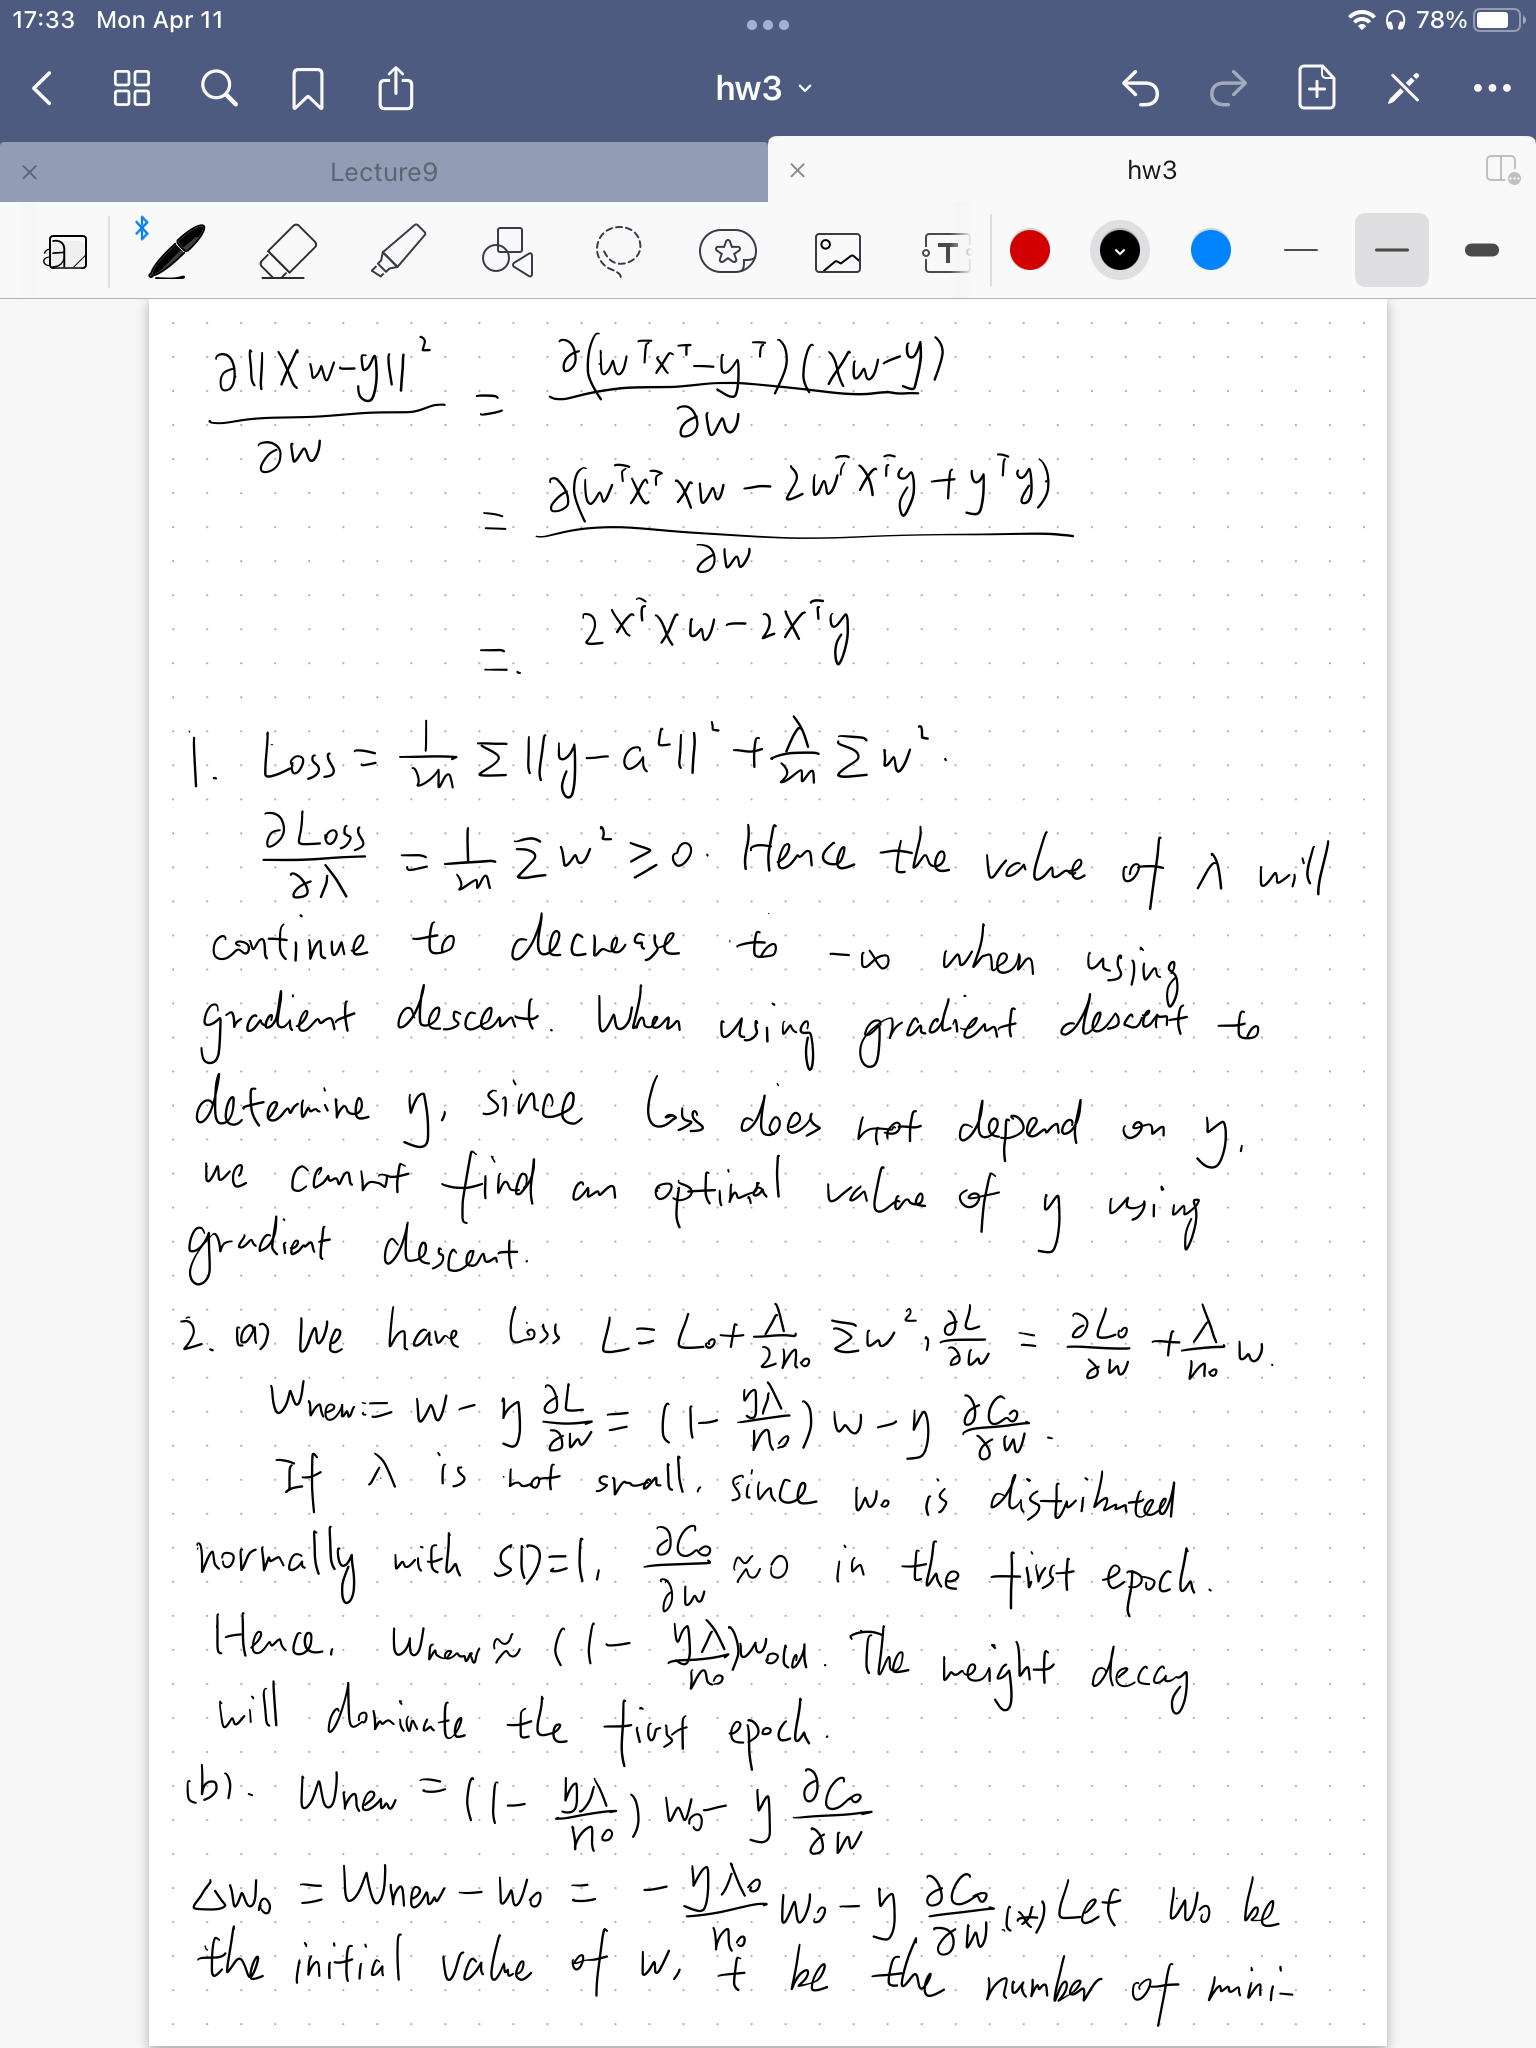 17:33 Mon Apr 11 78%
hw3
Lecture9 hw3
T
∂||Xw-y||² / ∂w = ∂(wᵀxᵀ-yᵀ)(Xw-y) / ∂w
= ∂(wᵀxᵀxw - 2wᵀxᵀy + yᵀy) / ∂w
=. 2xᵀxw - 2xᵀy
1. Loss = 1/2n Σ||y-aᴸ||² + λ/2n Σw².
∂Loss/∂λ = 1/2n Σw² ≥ 0. Hence the value of λ will
continue to decrease to -∞ when using
gradient descent. When using gradient descent to
determine η, since Loss does not depend on η,
we cannot find an optimal value of η using
gradient descent.
2. (a) We have Loss L = L₀ + λ/2n₀ Σw², ∂L/∂w = ∂L₀/∂w + λ/n₀ w.
Wnew := w - η ∂L/∂w = (1 - ηλ/n₀) w - η ∂C₀/∂w.
If λ is not small, since w₀ is distributed
normally with SD=1, ∂C₀/∂w ≈ 0 in the first epoch.
Hence, Wnew ≈ (1 - ηλ/n₀)Wold. The weight decay
will dominate the first epoch.
(b). Wnew = (1 - ηλ/n₀) w₀ - η ∂C₀/∂w
Δw₀ = Wnew - W₀ = - ηλ₀/n₀ W₀ - η ∂C₀/∂w .(*) Let W₀ be
the initial value of w, t be the number of mini-